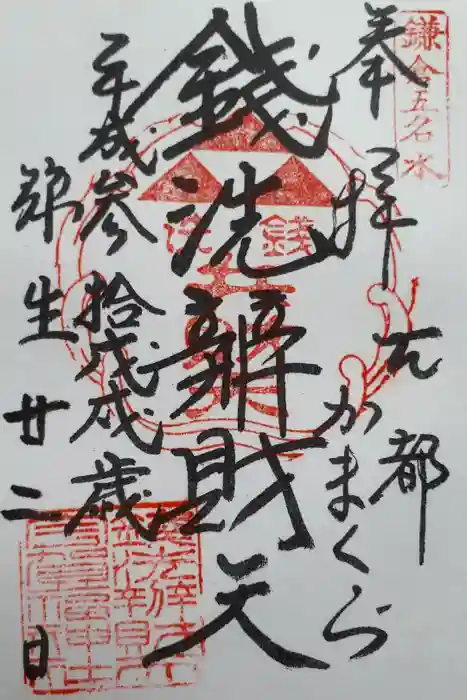 鎌倉五名水
奉拝 古都
かまくら
銭洗辨財天
平成参拾戊戌歳
弥生廿二日
銭洗